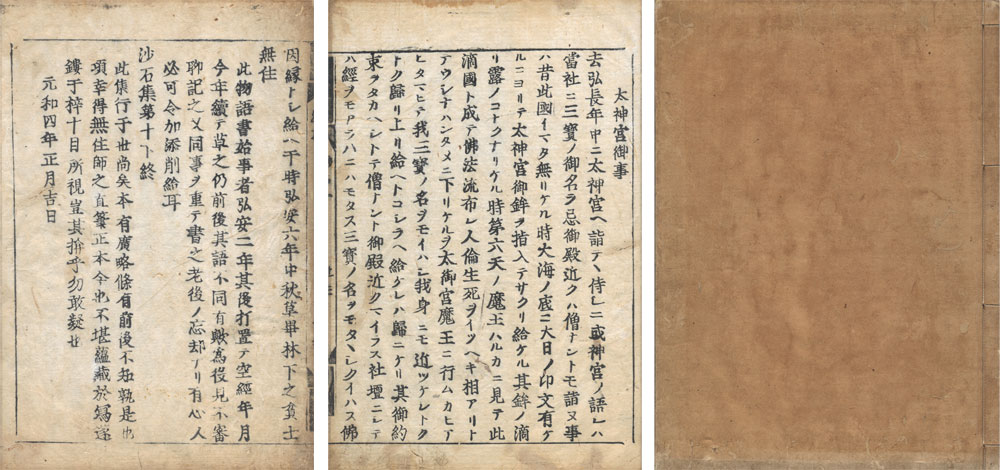 太神宮御事
去弘長年中ニ太神宮ヘ詣テヽ侍レニ或神宮ノ語レハ
當社ニ三寳ノ御名ヲ忌御殿近クハ僧ナントモ詣ヌ事
ハ昔此國イマタ無リケル時大海ノ底ニ大日ノ印文有ケ
ルニヨリテ太神宮御鉾ヲ指入テサクリ給ケル其鉾ノ滴
リ露ノコトクナリケル時第六天ノ魔王ハルカニ見テ此
滴國ト成テ佛法流布レ人倫生死ヲイツヘキ相アリト
テウシナハンタメニ下リケルヲ太御宮魔王ニ行ムカヒア
ヒタマヒテ我三寳ノ名ヲモイハレ我身ニモ近ツケレトク
トク歸リ上リ給ヘトコレラヘ給ケレハ歸ニケリ其御約
束ヲタカヘレトテ僧ナント御殿近クマイラス社壇ニレテ
ハ經ヲモアラハニハモタス三寳ノ名ヲモタヽレクイハス佛
因縁トレ給ヘ于時弘安六年中秋草畢林下之貧士
無住
此物語書始事者弘安二年其後打置テ空經年月
今年續テ草之仍前後其語不同有歟為後見不審
聊記之又同事ヲ重テ書之老後ノ忘却ナリ有心人
必可令加添削給耳
沙石集第十下終
此集行于世尚矣本有廣略條目前後不知孰是也
頃幸得無住師之直筆正本今也不堪蘊藏於寫遂
鏤于梓十目所視豈其揜乎勿敢疑也
元和四年正月吉日